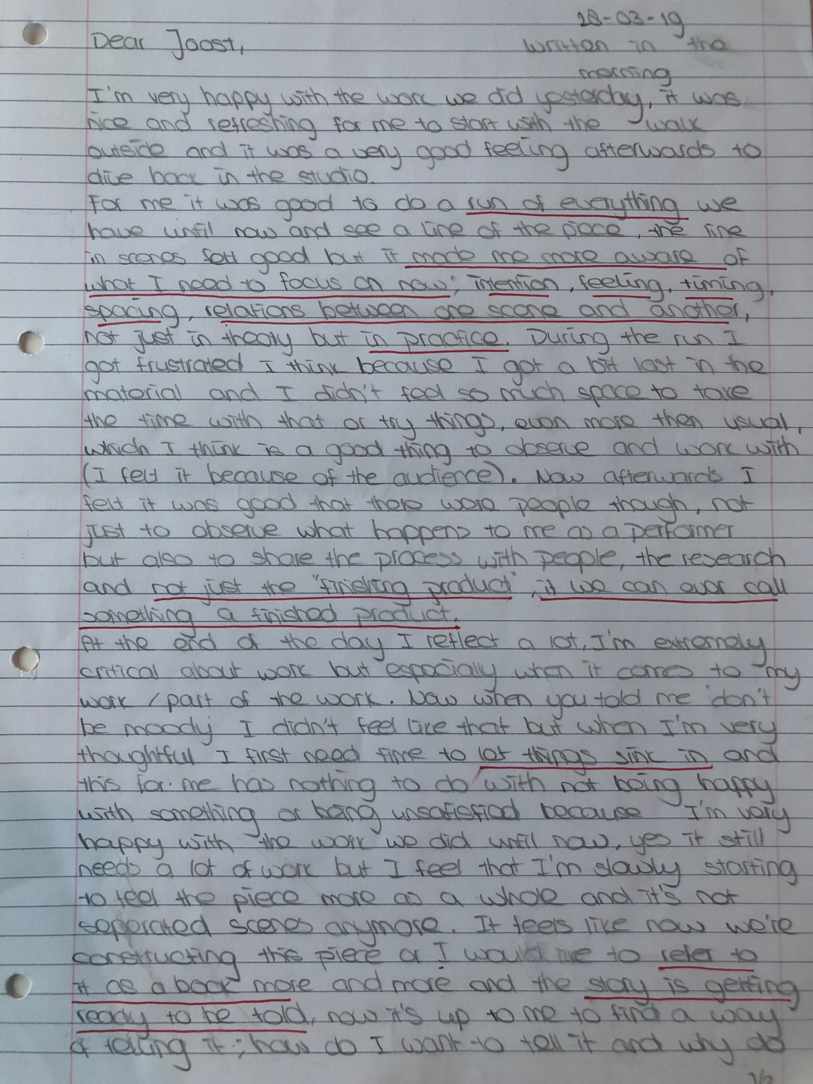 28-03-19
Dear Joost,
written in the
morning
I'm very happy with the work we did yesterday, it was
nice and refreshing for me to start with the walk
outside and it was a very good feeling afterwards to
dive back in the studio.
For me it was good to do a run of everything we
have until now and see a line of the piece, the line
in scenes felt good but it made me more aware of
what I need to focus on now; intention, feeling, timing,
spacing, relations between one scene and another,
not just in theory but in practice. During the run I
got frustrated I think because I got a bit lost in the
material and I didn't feel so much space to take
the time with that or try things, even more then usual,
which I think is a good thing to observe and work with
(I felt it because of the audience). Now afterwards I
felt it was good that there were people though, not
just to observe what happens to me as a performer
but also to share the process with people, the research
and not just the "finishing product", if we can ever call
something a finished product.
At the end of the day I reflect a lot, I'm extremely
critical about work but especially when it comes to my
work / part of the work. Now when you told me 'don't
be moody' I didn't feel like that but when I'm very
thoughtful I first need time to let things sink in and
this for me has nothing to do with not being happy
with something or being unsatisfied because I'm very
happy with the work we did until now, yes it still
needs a lot of work but I feel that I'm slowly starting
to feel the piece more as a whole and it's not
seperated scenes anymore. It feels like now we're
constructing this piece or I would like to refer to
it as a book more and more and the story is getting
ready to be told, now it's up to me to find a way
of telling it; how do I want to tell it and why do
1/2